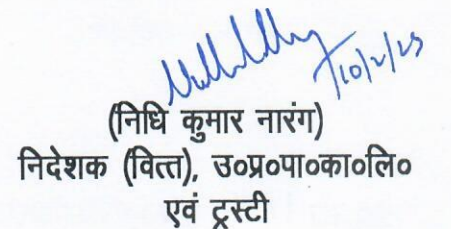 10/2/25
(निधि कुमार नारंग)
निदेशक (वित्त), उ०प्र०पा०का०लि०
एवं ट्रस्टी